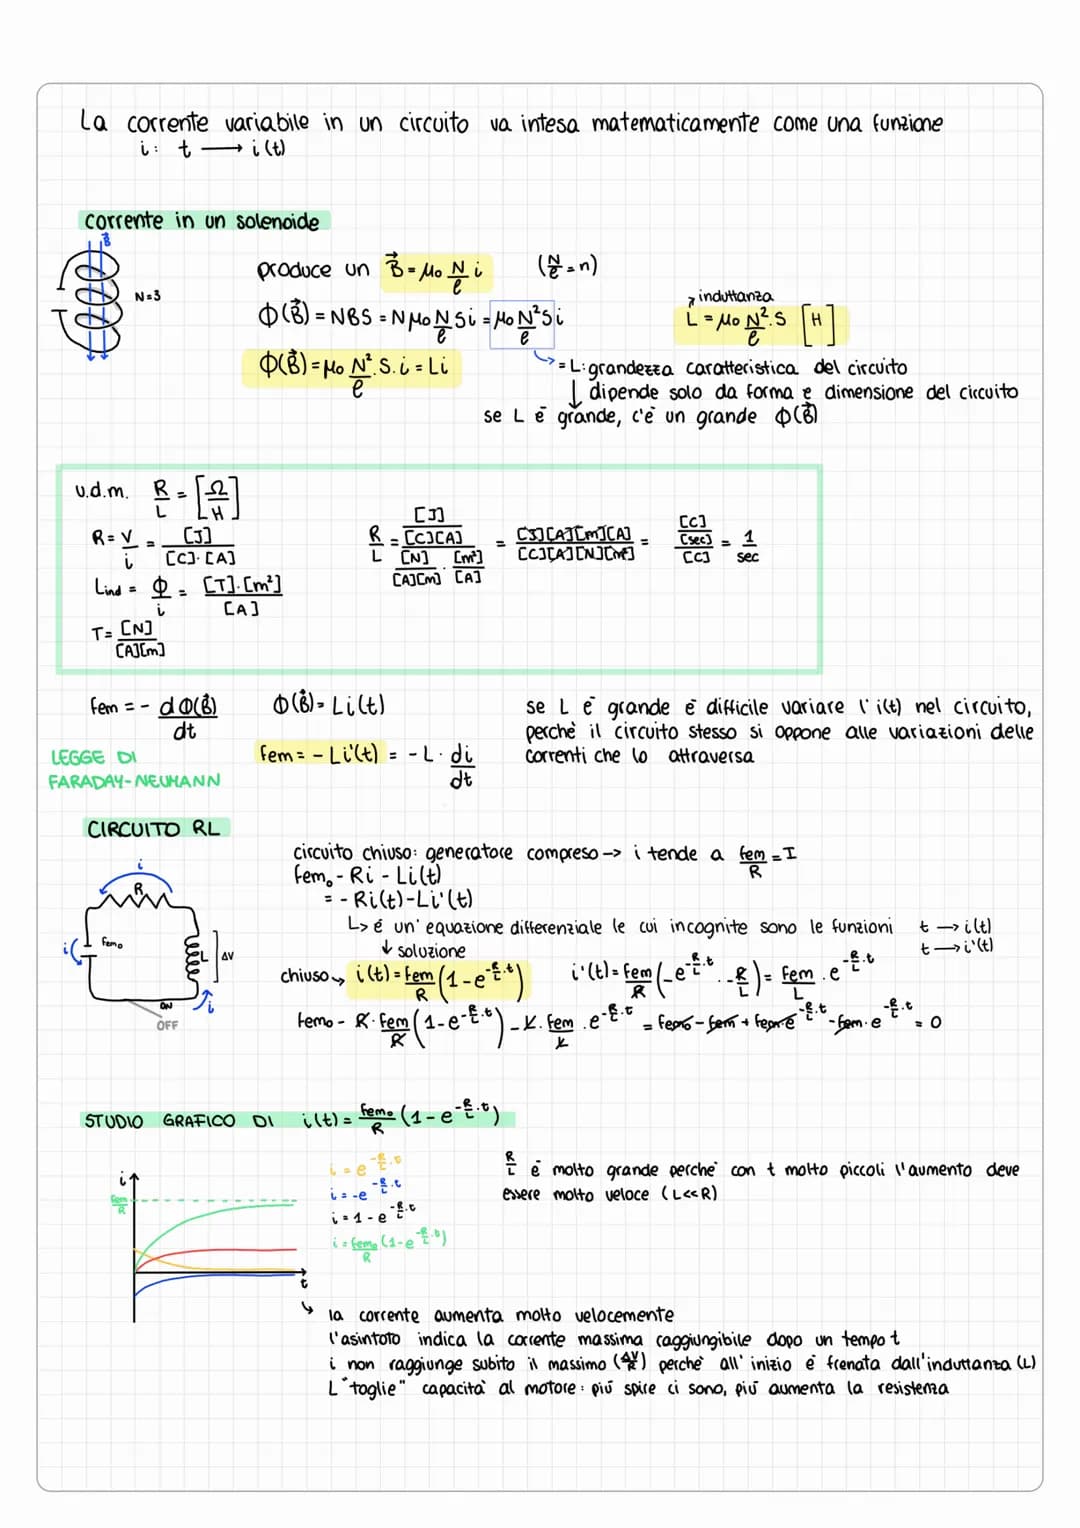 La corrente variabile in un circuito va intesa matematicamente come una funzione
i: t → i(t)
corrente in un solenoide
B⃗
N=3
produce un B⃗ = μ₀ N/ℓ i (N/ℓ = n)
Φ(B⃗) = NBS = N μ₀ N/ℓ S i = μ₀ N²/ℓ S i
induttanza
L = μ₀ N²/ℓ . S [H]
Φ(B⃗) = μ₀ N²/ℓ . S . i = Li
= L: grandezza caratteristica del circuito
↓ dipende solo da forma e dimensione del circuito
se L è grande, c'è un grande Φ(B⃗)
u.d.m. R/L = [Ω/H]
R = V/i = [J]/[C]·[A]
Lind = Φ/i = [T].[m²]/[A]
T = [N]/[A][m]
R/L = ([J]/[C][A])/([N]/[A][m] · [m²]/[A]) = [J][A][m][A]/[C][A][N][m²] = ([C]/[sec])/[C] = 1/sec
fem = - dΦ(B⃗)/dt
Φ(B⃗) = Li(t)
LEGGE DI
FARADAY-NEUMANN
fem = - Li'(t) = -L · di/dt
se L è grande è difficile variare l'i(t) nel circuito,
perchè il circuito stesso si oppone alle variazioni delle
correnti che lo attraversa
CIRCUITO RL
i
R
i
fem₀
L
ΔV
ON
i
OFF
circuito chiuso: generatore compreso → i tende a fem/R = I
fem₀ - Ri - Li(t)
= - Ri(t) - Li'(t)
↳ é un'equazione differenziale le cui incognite sono le funzioni t → i(t)
t → i'(t)
↓ soluzione
chiuso → i(t) = fem/R (1 - e^(-R/L·t)) i'(t) = fem/R (-e^(-R/L·t) . -R/L) = fem/L . e^(-R/L·t)
fem₀ - R · fem/R (1 - e^(-R/L·t)) - L . fem/L . e^(-R/L·t) = fem₀ - fem + fem·e^(-R/L·t) - fem·e^(-R/L·t) = 0
STUDIO GRAFICO DI i(t) = fem₀/R (1 - e^(-R/L·t))
i
fem/R
t
i = e^(-R/L·t)
i = -e^(-R/L·t)
i = 1 - e^(-R/L·t)
i = fem₀/R (1 - e^(-R/L·t))
R/L è molto grande perchè con t molto piccoli l'aumento deve
essere molto veloce (L<<R)
↳ la corrente aumenta molto velocemente
l'asintoto indica la corrente massima raggiungibile dopo un tempo t
i non raggiunge subito il massimo (ΔV/R) perchè all'inizio è frenata dall'induttanza (L)
L "toglie" capacità al motore: più spire ci sono, più aumenta la resistenza